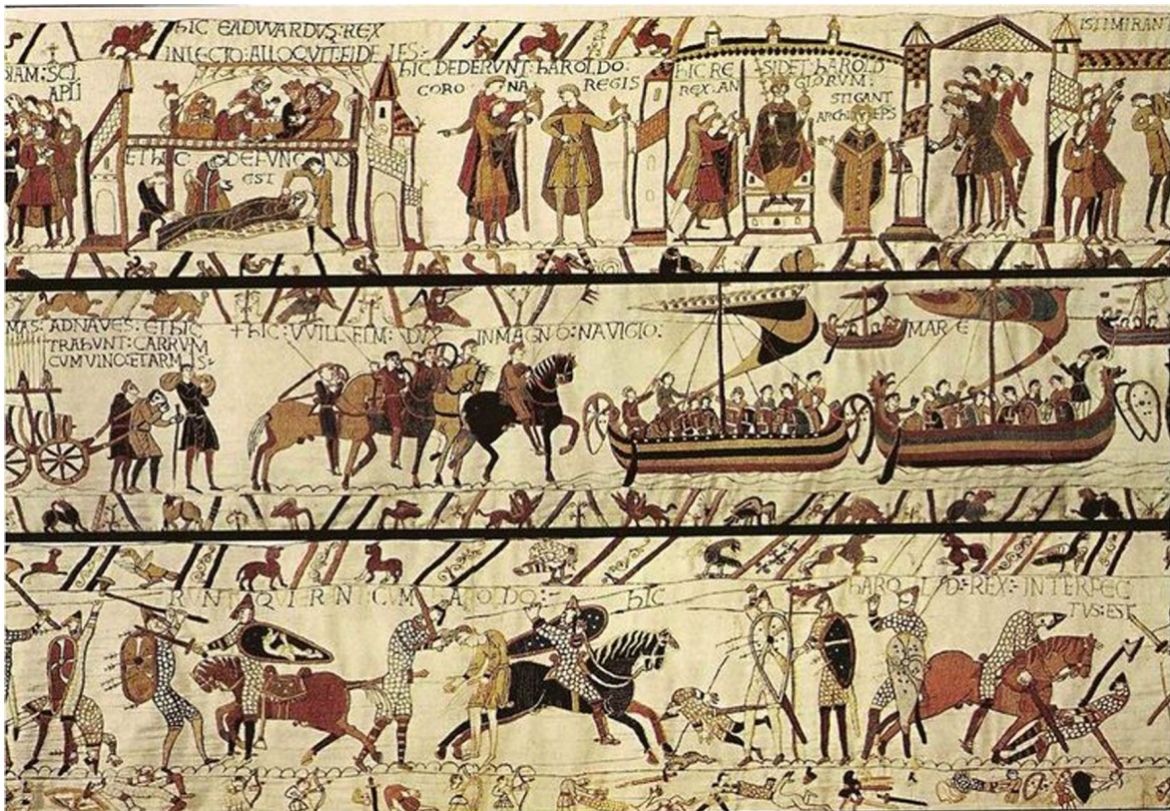 hIC EADVVARDVS: REX
INLECTO: ALLOQVIT: FIDELES:
IAM: SCI
APLI
ET hIC DEFVNCTVS
EST
hIC DEDERVNT: hAROLDO:
CORONA REGIS
hIC RESIDET: hAROLD
REX: ANGLORVM:
STIGANT
ARChIEPS
ISTI MIRANT
MAS: ADNAVES: ET hIC
TRAhVNT: CARRVM
CVM VINO: ET ARMIS:
+ hIC: VVILLELM: DVX INMAGNO: NAVIGIO:
MARE
hIC
hAROLD: REX: INTERFEC
TVS: EST